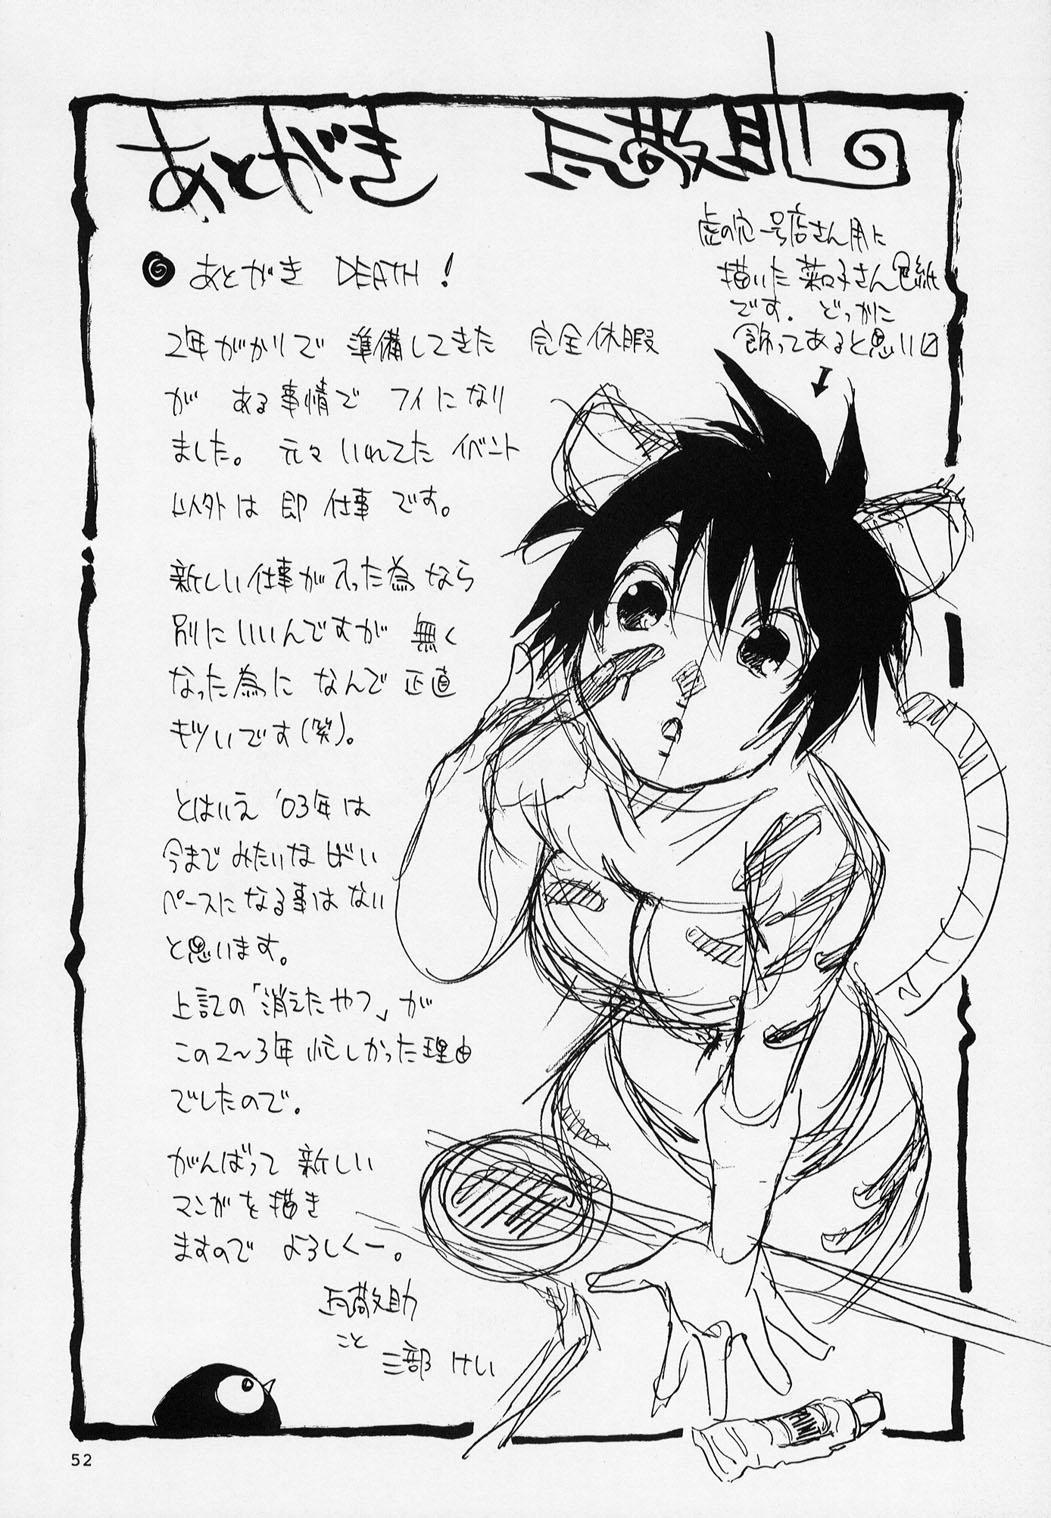 あとがき 瓦敬助
虎の穴一号店さん用に
描いた菜々子さん色紙
です。どっかに
飾ってあると思い〼
↓
あとがき DEATH!
2年がかりで 準備してきた 完全休暇
が ある事情で フイになり
ました。元々 いれてた イベント
以外は 即 仕事 です。
新しい仕事が入った為なら
別にいいんですが 無く
なった為に なんで 正直
キツいです(笑)。
とはいえ '03年は
今まで みたいな ばい
ペースに なる事は ない
と思います。
上記の「消えたやつ」が
この2〜3年 忙しかった理由
でしたので。
がんばって 新しい
マンガを 描き
ますので よろしくー。
瓦敬助
こと
三部 けい
PAINT
52